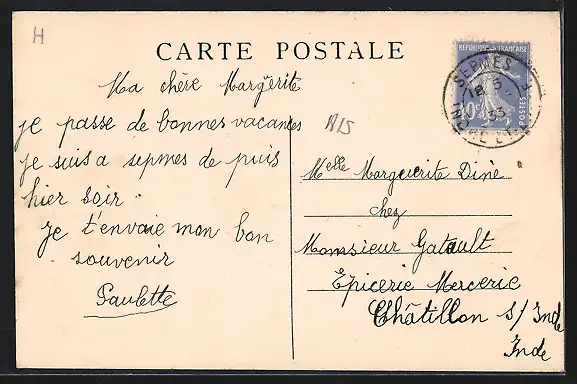 H
CARTE POSTALE
REPUBLIQUE FRANÇAISE
POSTES
SEPMES
18 5
35
INDRE ET
Ma chère Margerite
je passe de bonnes vacances
je suis a sepmes de puis
hier soir
je t'envoie mon bon
souvenir
Paulette
A15
Melle Marguerite Dine
chez
Monsieur Gatault
Epicerie Mercerie
Châtillon s/ Inde
Inde